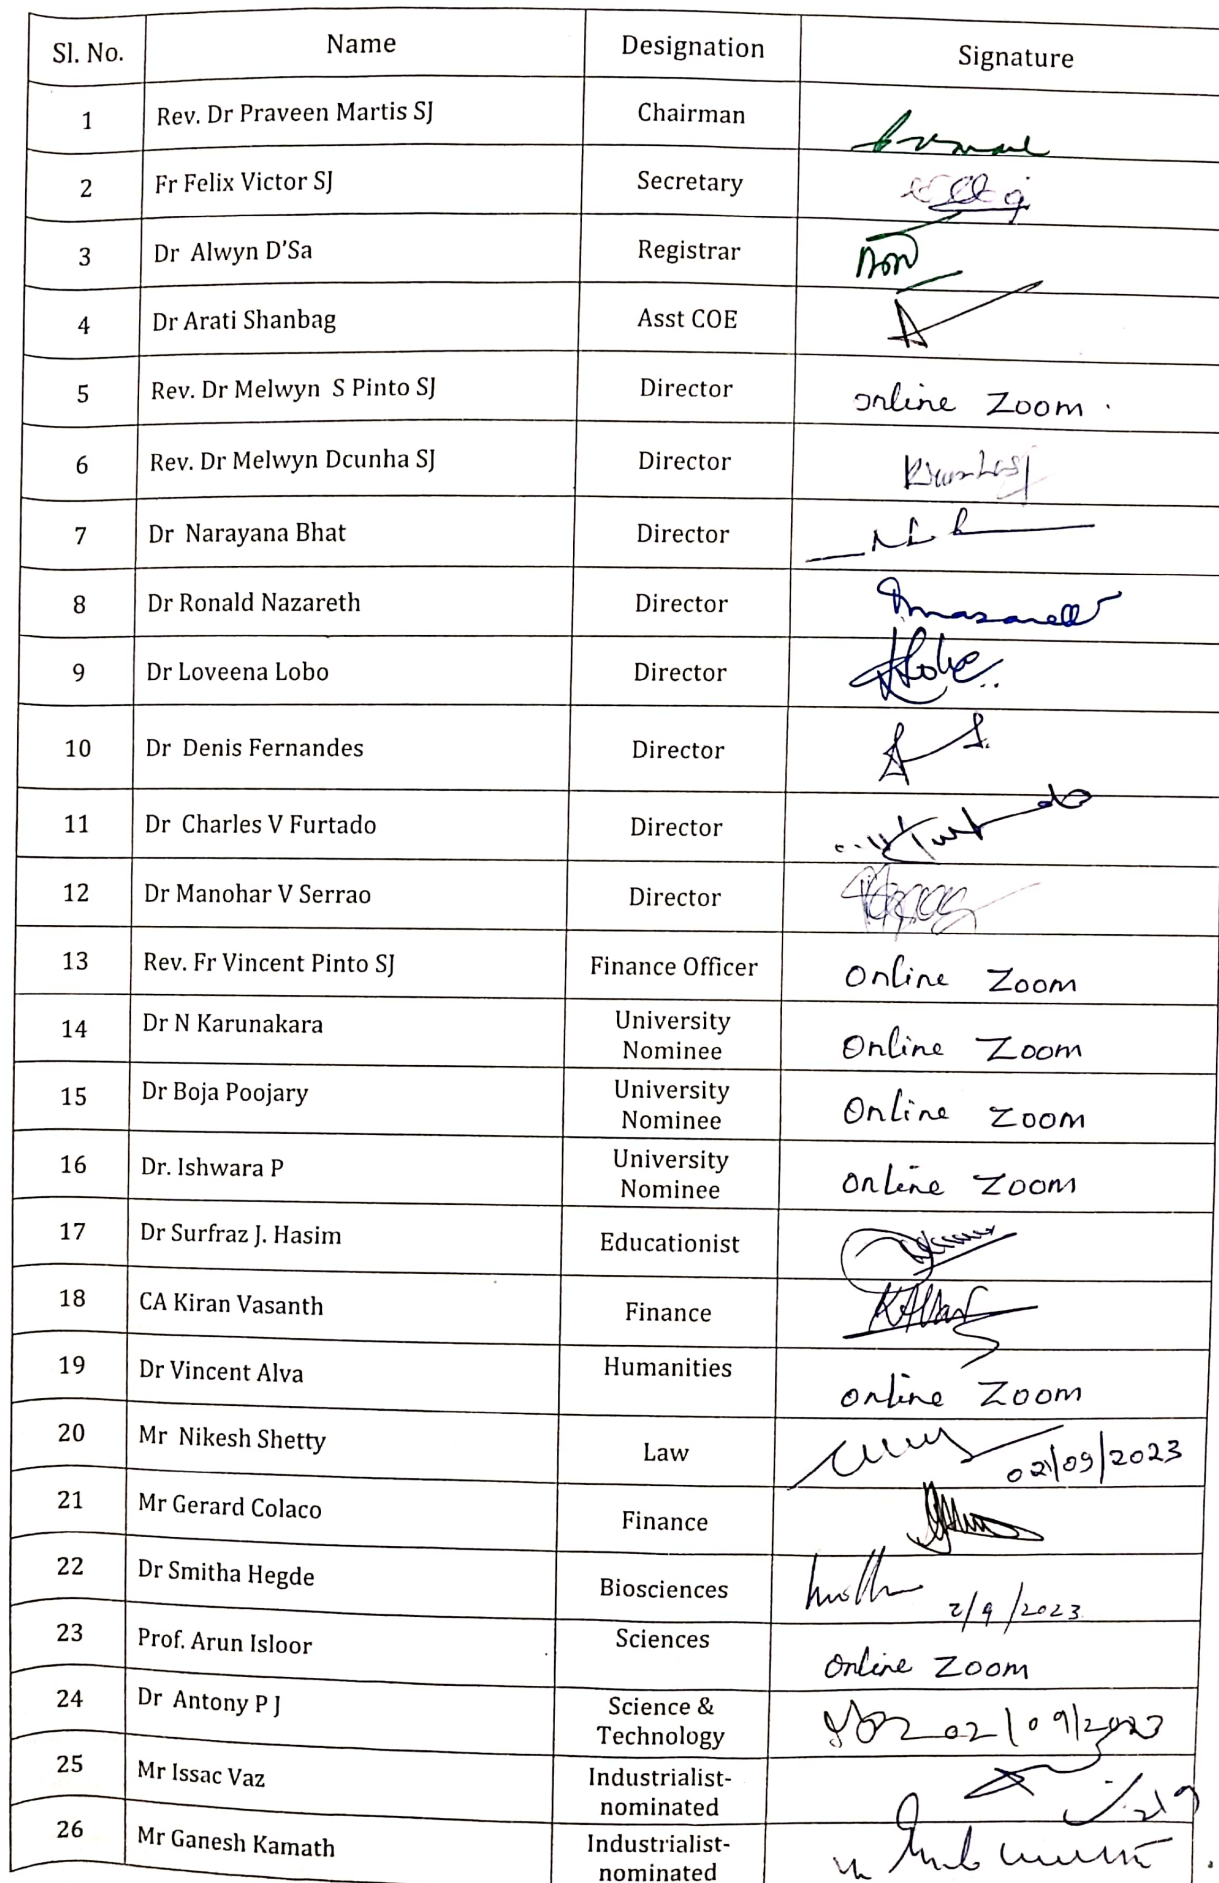 Sl. No. Name Designation Signature
1 Rev. Dr Praveen Martis SJ Chairman
2 Fr Felix Victor SJ Secretary
3 Dr Alwyn D'Sa Registrar
4 Dr Arati Shanbag Asst COE
5 Rev. Dr Melwyn S Pinto SJ Director online Zoom.
6 Rev. Dr Melwyn Dcunha SJ Director
7 Dr Narayana Bhat Director
8 Dr Ronald Nazareth Director
9 Dr Loveena Lobo Director
10 Dr Denis Fernandes Director
11 Dr Charles V Furtado Director
12 Dr Manohar V Serrao Director
13 Rev. Fr Vincent Pinto SJ Finance Officer Online Zoom
14 Dr N Karunakara University
Nominee Online Zoom
15 Dr Boja Poojary University
Nominee Online Zoom
16 Dr. Ishwara P University
Nominee Online Zoom
17 Dr Surfraz J. Hasim Educationist
18 CA Kiran Vasanth Finance
19 Dr Vincent Alva Humanities online Zoom
20 Mr Nikesh Shetty Law 02/09/2023
21 Mr Gerard Colaco Finance
22 Dr Smitha Hegde Biosciences 2/9/2023
23 Prof. Arun Isloor Sciences Online Zoom
24 Dr Antony P J Science &
Technology 02/09/2023
25 Mr Issac Vaz Industrialist-
nominated
26 Mr Ganesh Kamath Industrialist-
nominated